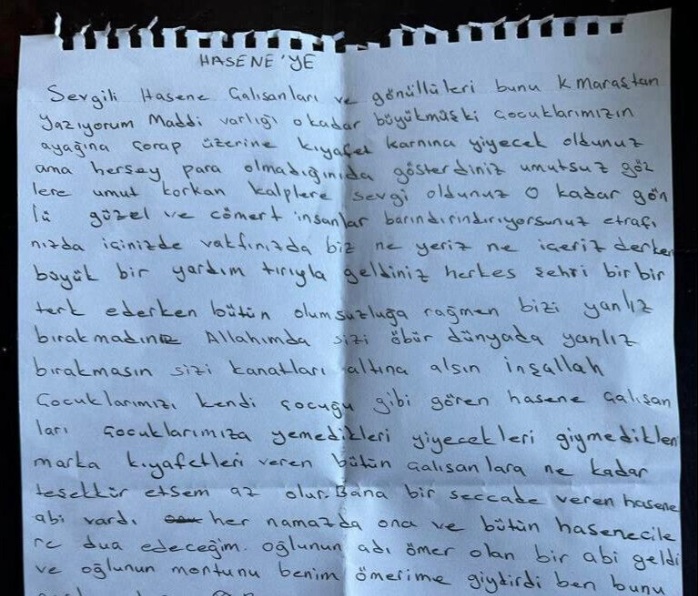 HASENE'YE
Sevgili Hasene Çalışanları ve gönüllüleri bunu K maraştan
yazıyorum Maddi varlığı okadar büyükmüşki çocuklarımızın
ayağına çorap üzerine kıyafet karnına yiyecek oldunuz
ama herşey para olmadığınıda gösterdiniz umutsuz göz
lere umut korkan kalplere sevgi oldunuz O kadar gön
lü güzel ve cömert insanlar barındırındırıyorsunuz etrafı
nızda içinizde vakfınızda biz ne yeriz ne içeriz derken
büyük bir yardım tırıyla geldiniz herkes şehri bir bir
terk ederken bütün olumsuzluğa rağmen bizi yanlız
bırakmadınız Allahımda sizi öbür dünyada yanlız
bırakmasın sizi kanatları altına alsın inşallah
Çocuklarımızı kendi çocuğu gibi gören hasene çalışan
ları çocuklarımıza yemedikleri yiyecekleri giymedikleri
marka kıyafetleri veren bütün çalışanlara ne kadar
teşekkür etsem az olur. Bana bir seccade veren hasene
abi vardı her namazda ona ve bütün hasenecile
re dua edeceğim. oğlunun adı ömer olan bir abi geldi
ve oğlunun montunu benim ömerime giydirdi ben bunu